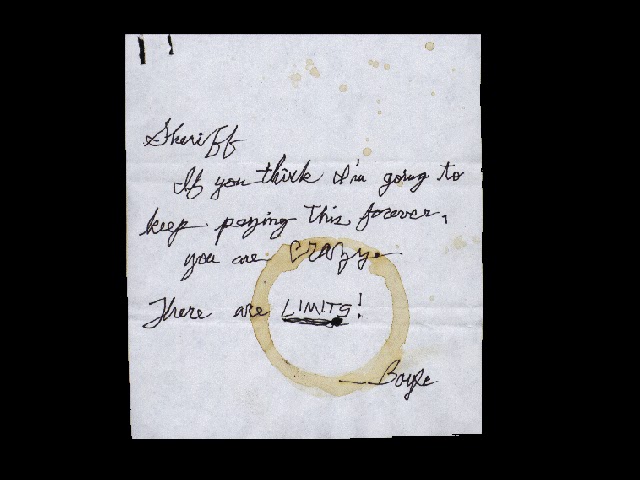 Sheriff
If you think I'm going to
keep paying this forever,
you are crazy.
There are LIMITS!
—Boyle